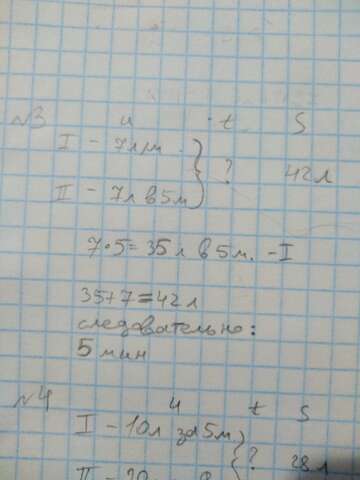 №3 u t S
I - 7л/м
} ? 42л
II - 7л в 5м
7·5=35л в 5м. -I
35+7=42л
следовательно:
5 мин
№4 u t S
I - 10л за 5м
} ? 28л
II - 20л